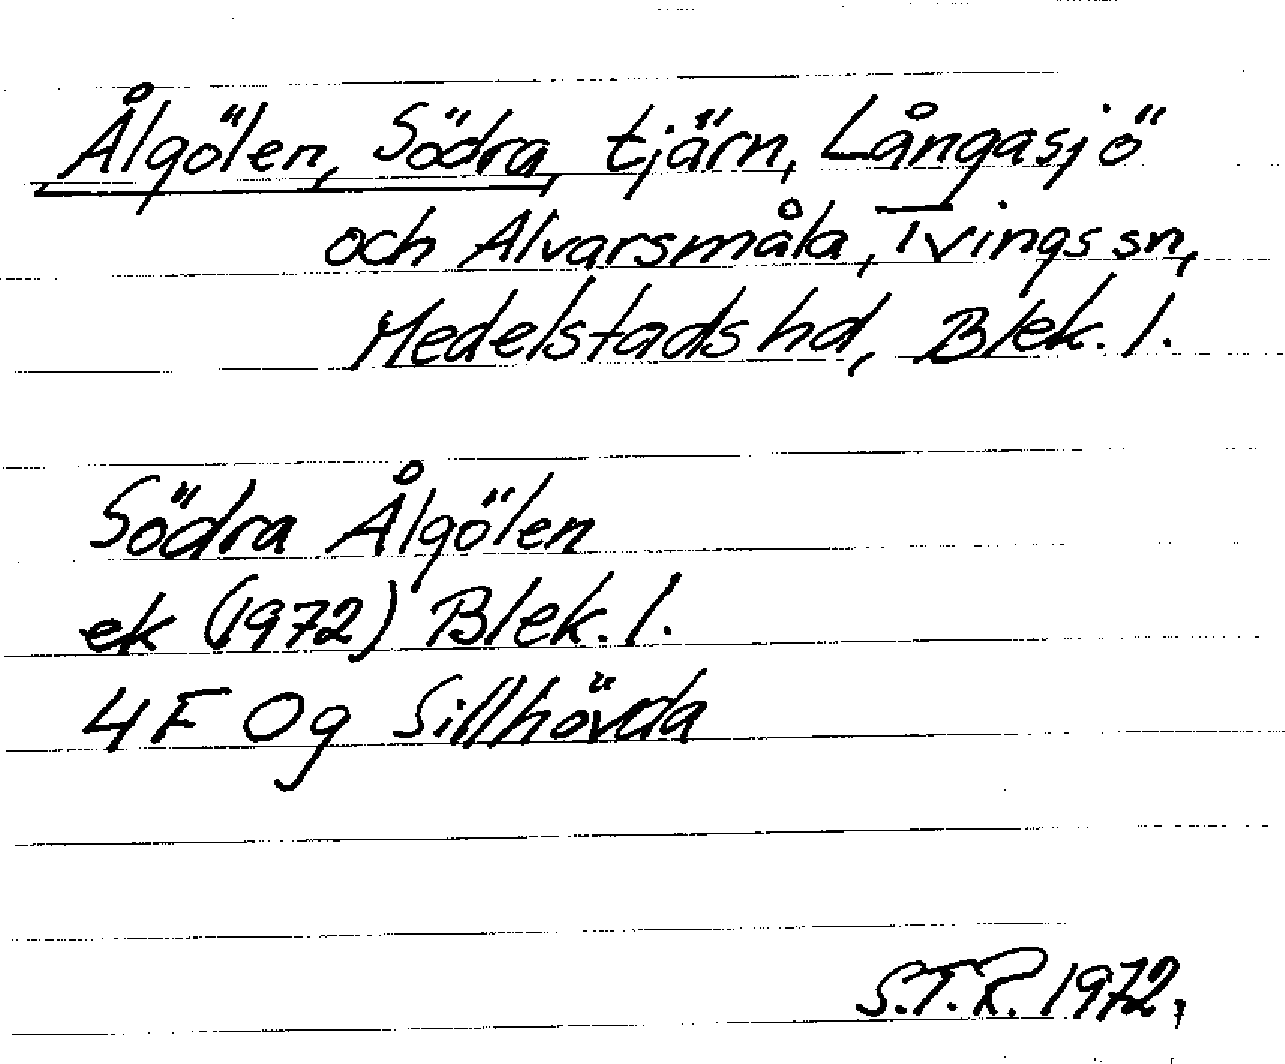 Ålgölen, Södra, tjärn, Långasjö
och Alvarsmåla, Tvings sn,
Medelstads hd, Blek. l.
Södra Ålgölen
ek (1972) Blek. l.
4F 0g Sillhövda
S.T.R. 1972.